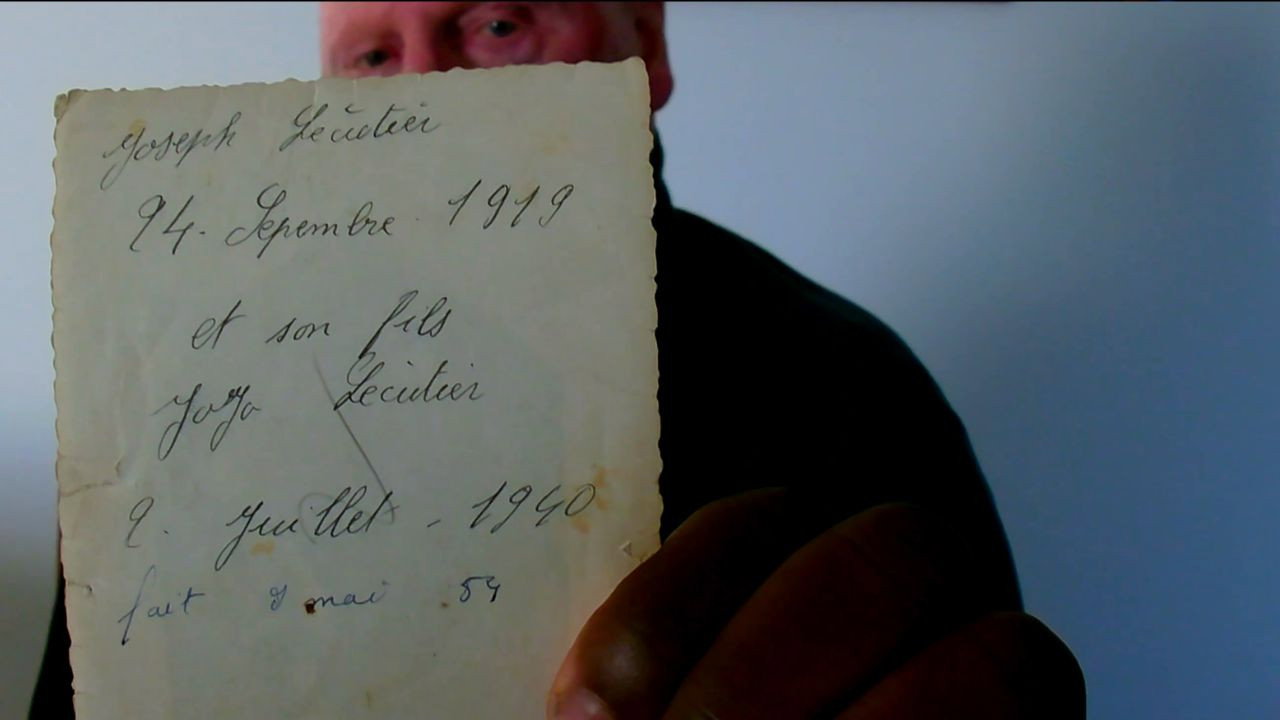 Joseph Lecutier
24. Sepembre. 1919
et son fils
JoJo Lecutier
2. Juillet - 1940
fait mai